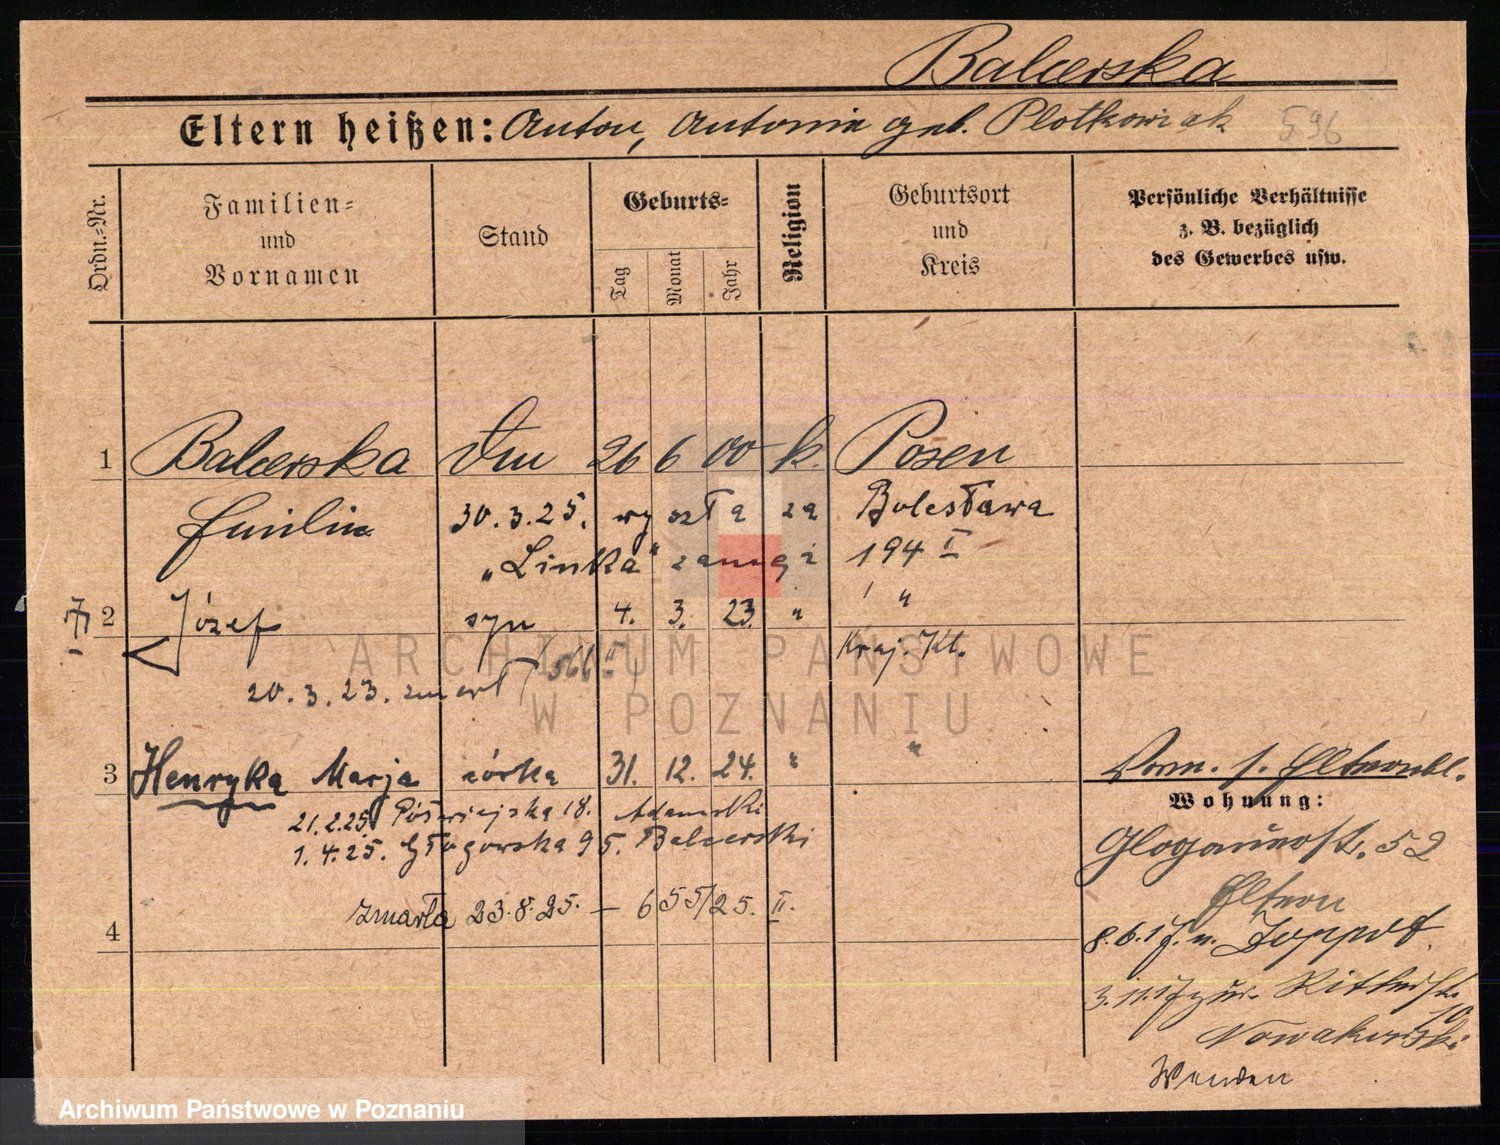 Balcerska
Eltern heißen: Anton, Antonia geb. Plotkowiak 596
Ordn.=Nr.
Familien=
und
Vornamen
Stand
Geburts=
Tag
Monat
Jahr
Religion
Geburtsort
und
Kreis
Persönliche Verhältnisse
z. B. bezüglich
des Gewerbes usw.
1 Balcerska 26 6 00 k. Posen
Emilie 30.3.25. wyszła za Bolesława
„Linka" zamęż 194 I
2 Józef syn 4. 3. 23. " ' "
Kraj. Kt.
20.3.23. zmarł
3 Henryka Marja córka 31. 12. 24. " "
21.2.25 Półwiejska 18. Adamski
1.4.25. Głogowska 95. Balcerski
zmarła 23.8.25. — 655/25. II.
4
Vorm. s. Elternbl.
Wohnung:
Glogauerstr. 52
Eltern
8.6.17. n. Zoppot
3.11.17 zur. Ritterstr. 10
Nowakowski
Wenden
ARCHIWUM PAŃSTWOWE
W POZNANIU
Archiwum Państwowe w Poznaniu